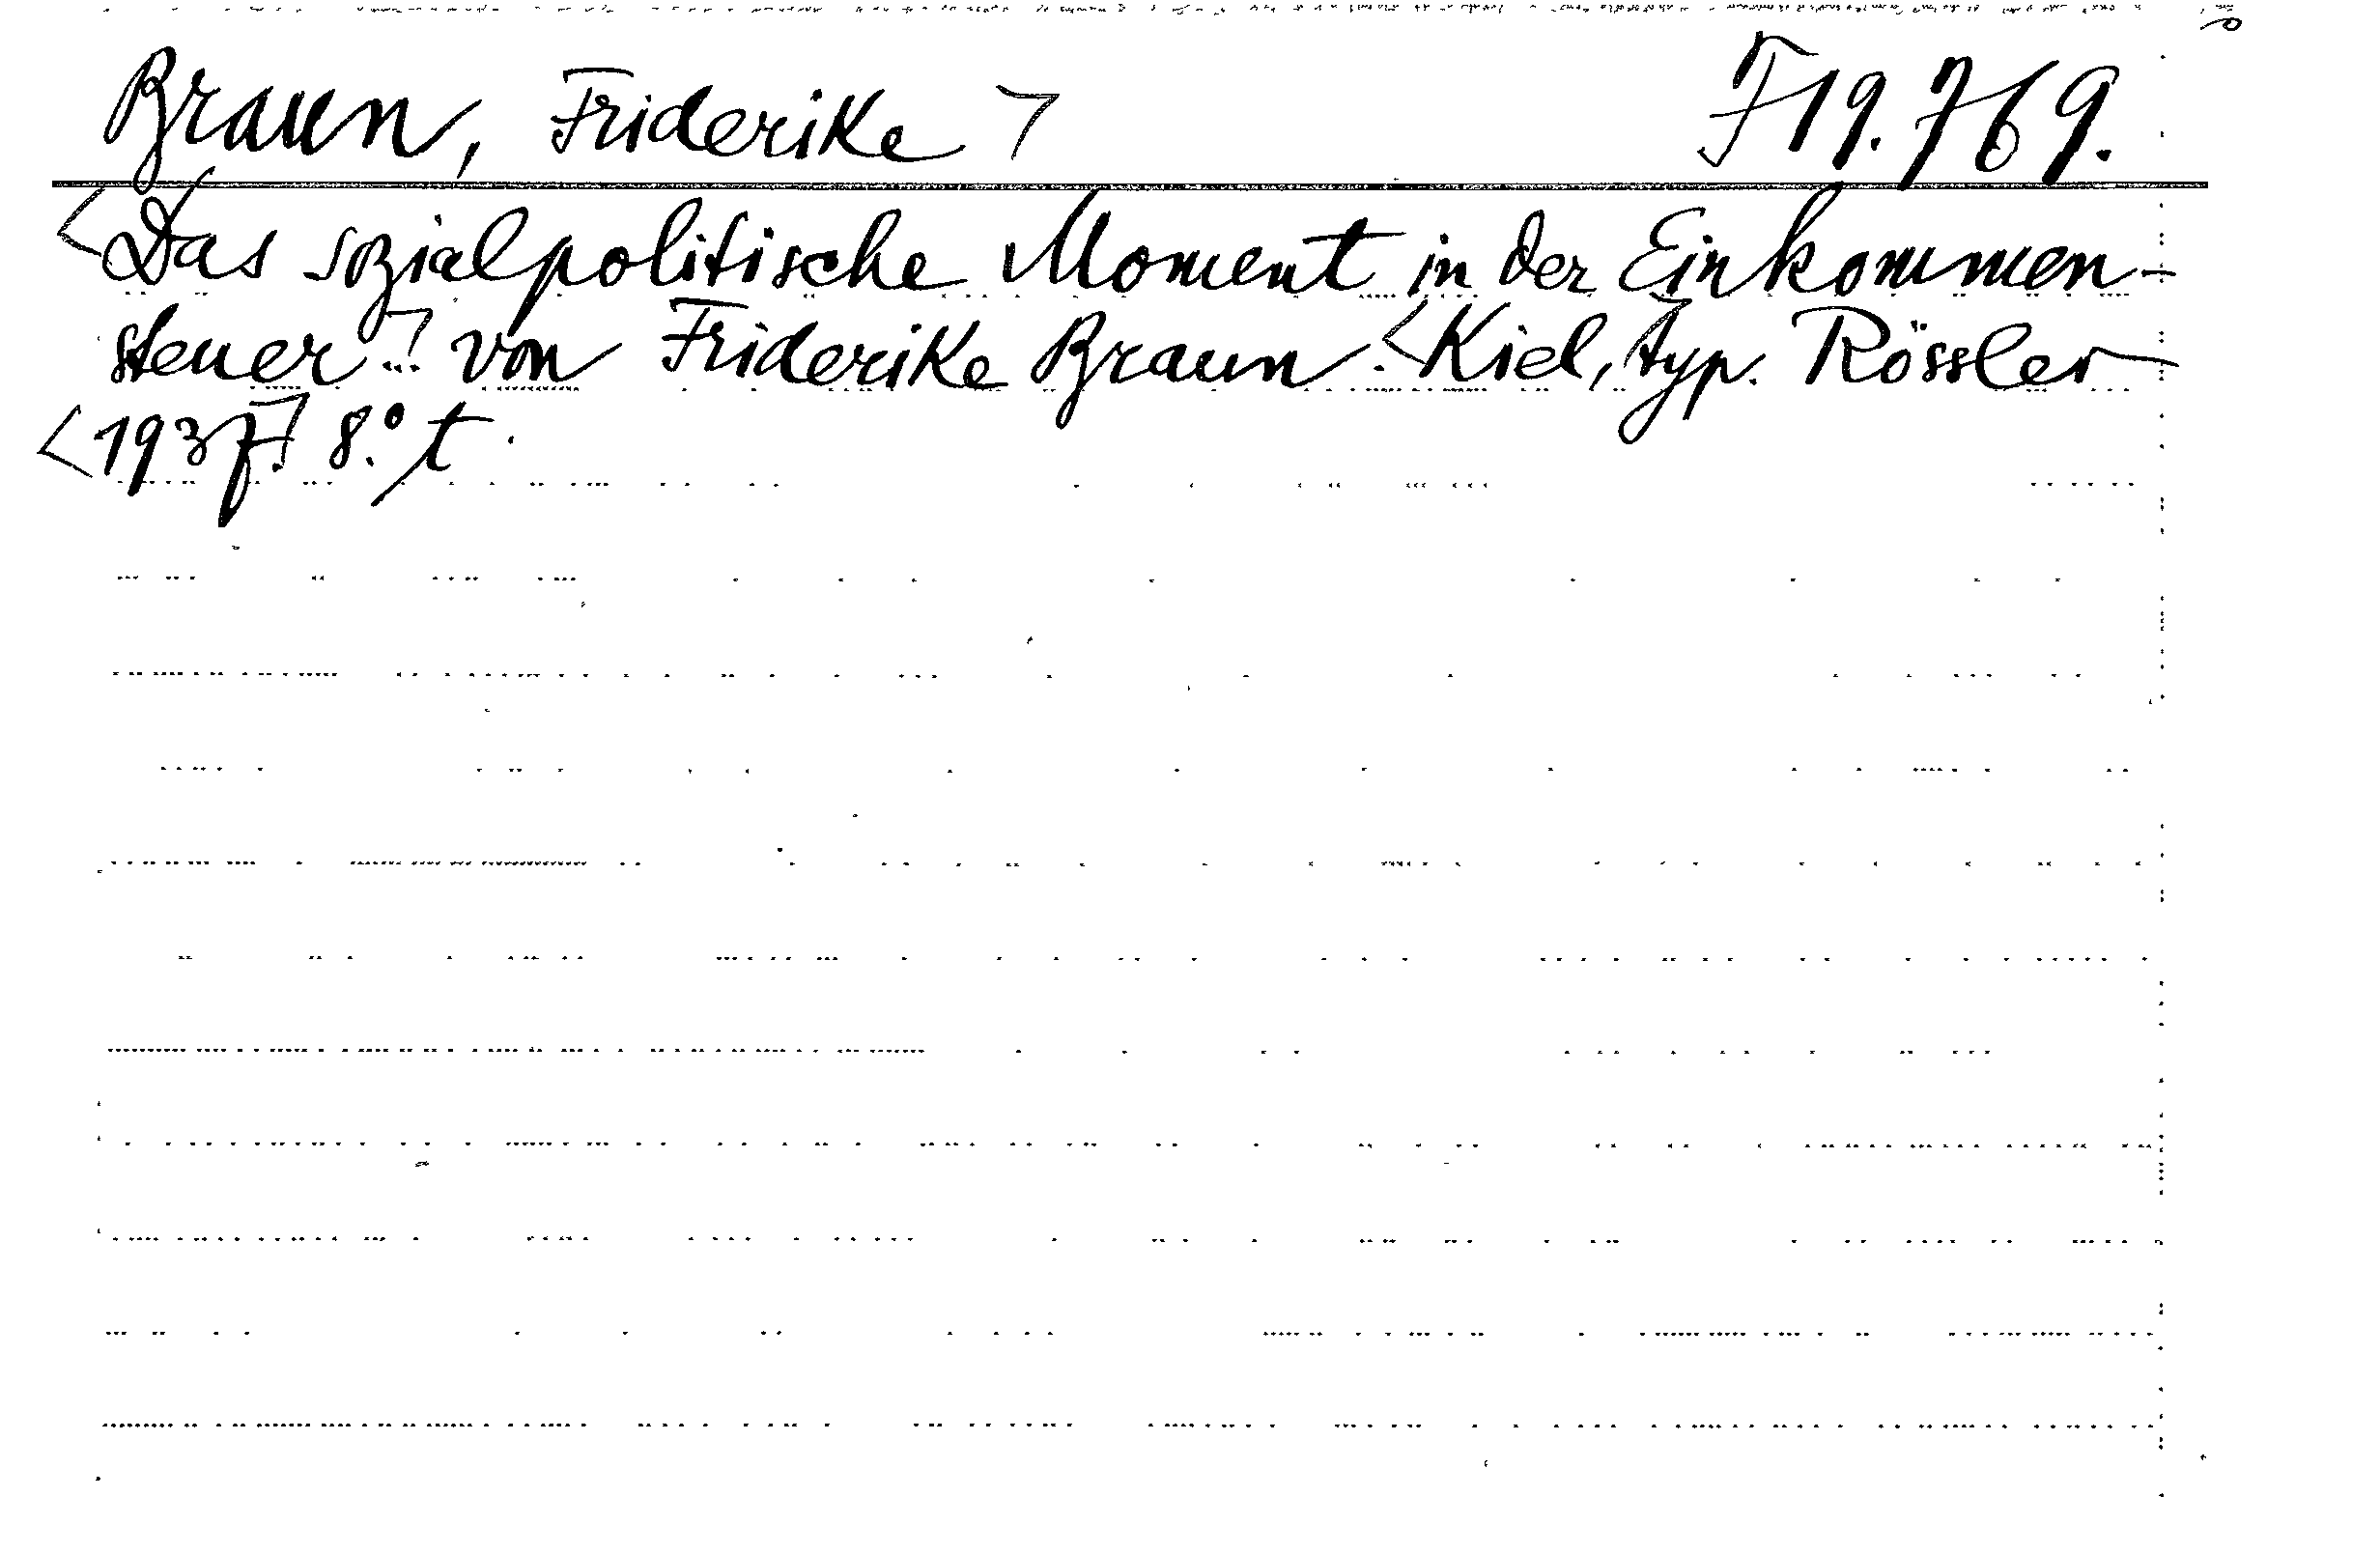 Braun, Friderike ⌉ F 19.769.
<Das sozialpolitische Moment in der Einkommen-
steuer.⌉ von Friderike Braun. <Kiel, typ. Rössler
<1937.⌉ 8.° t.